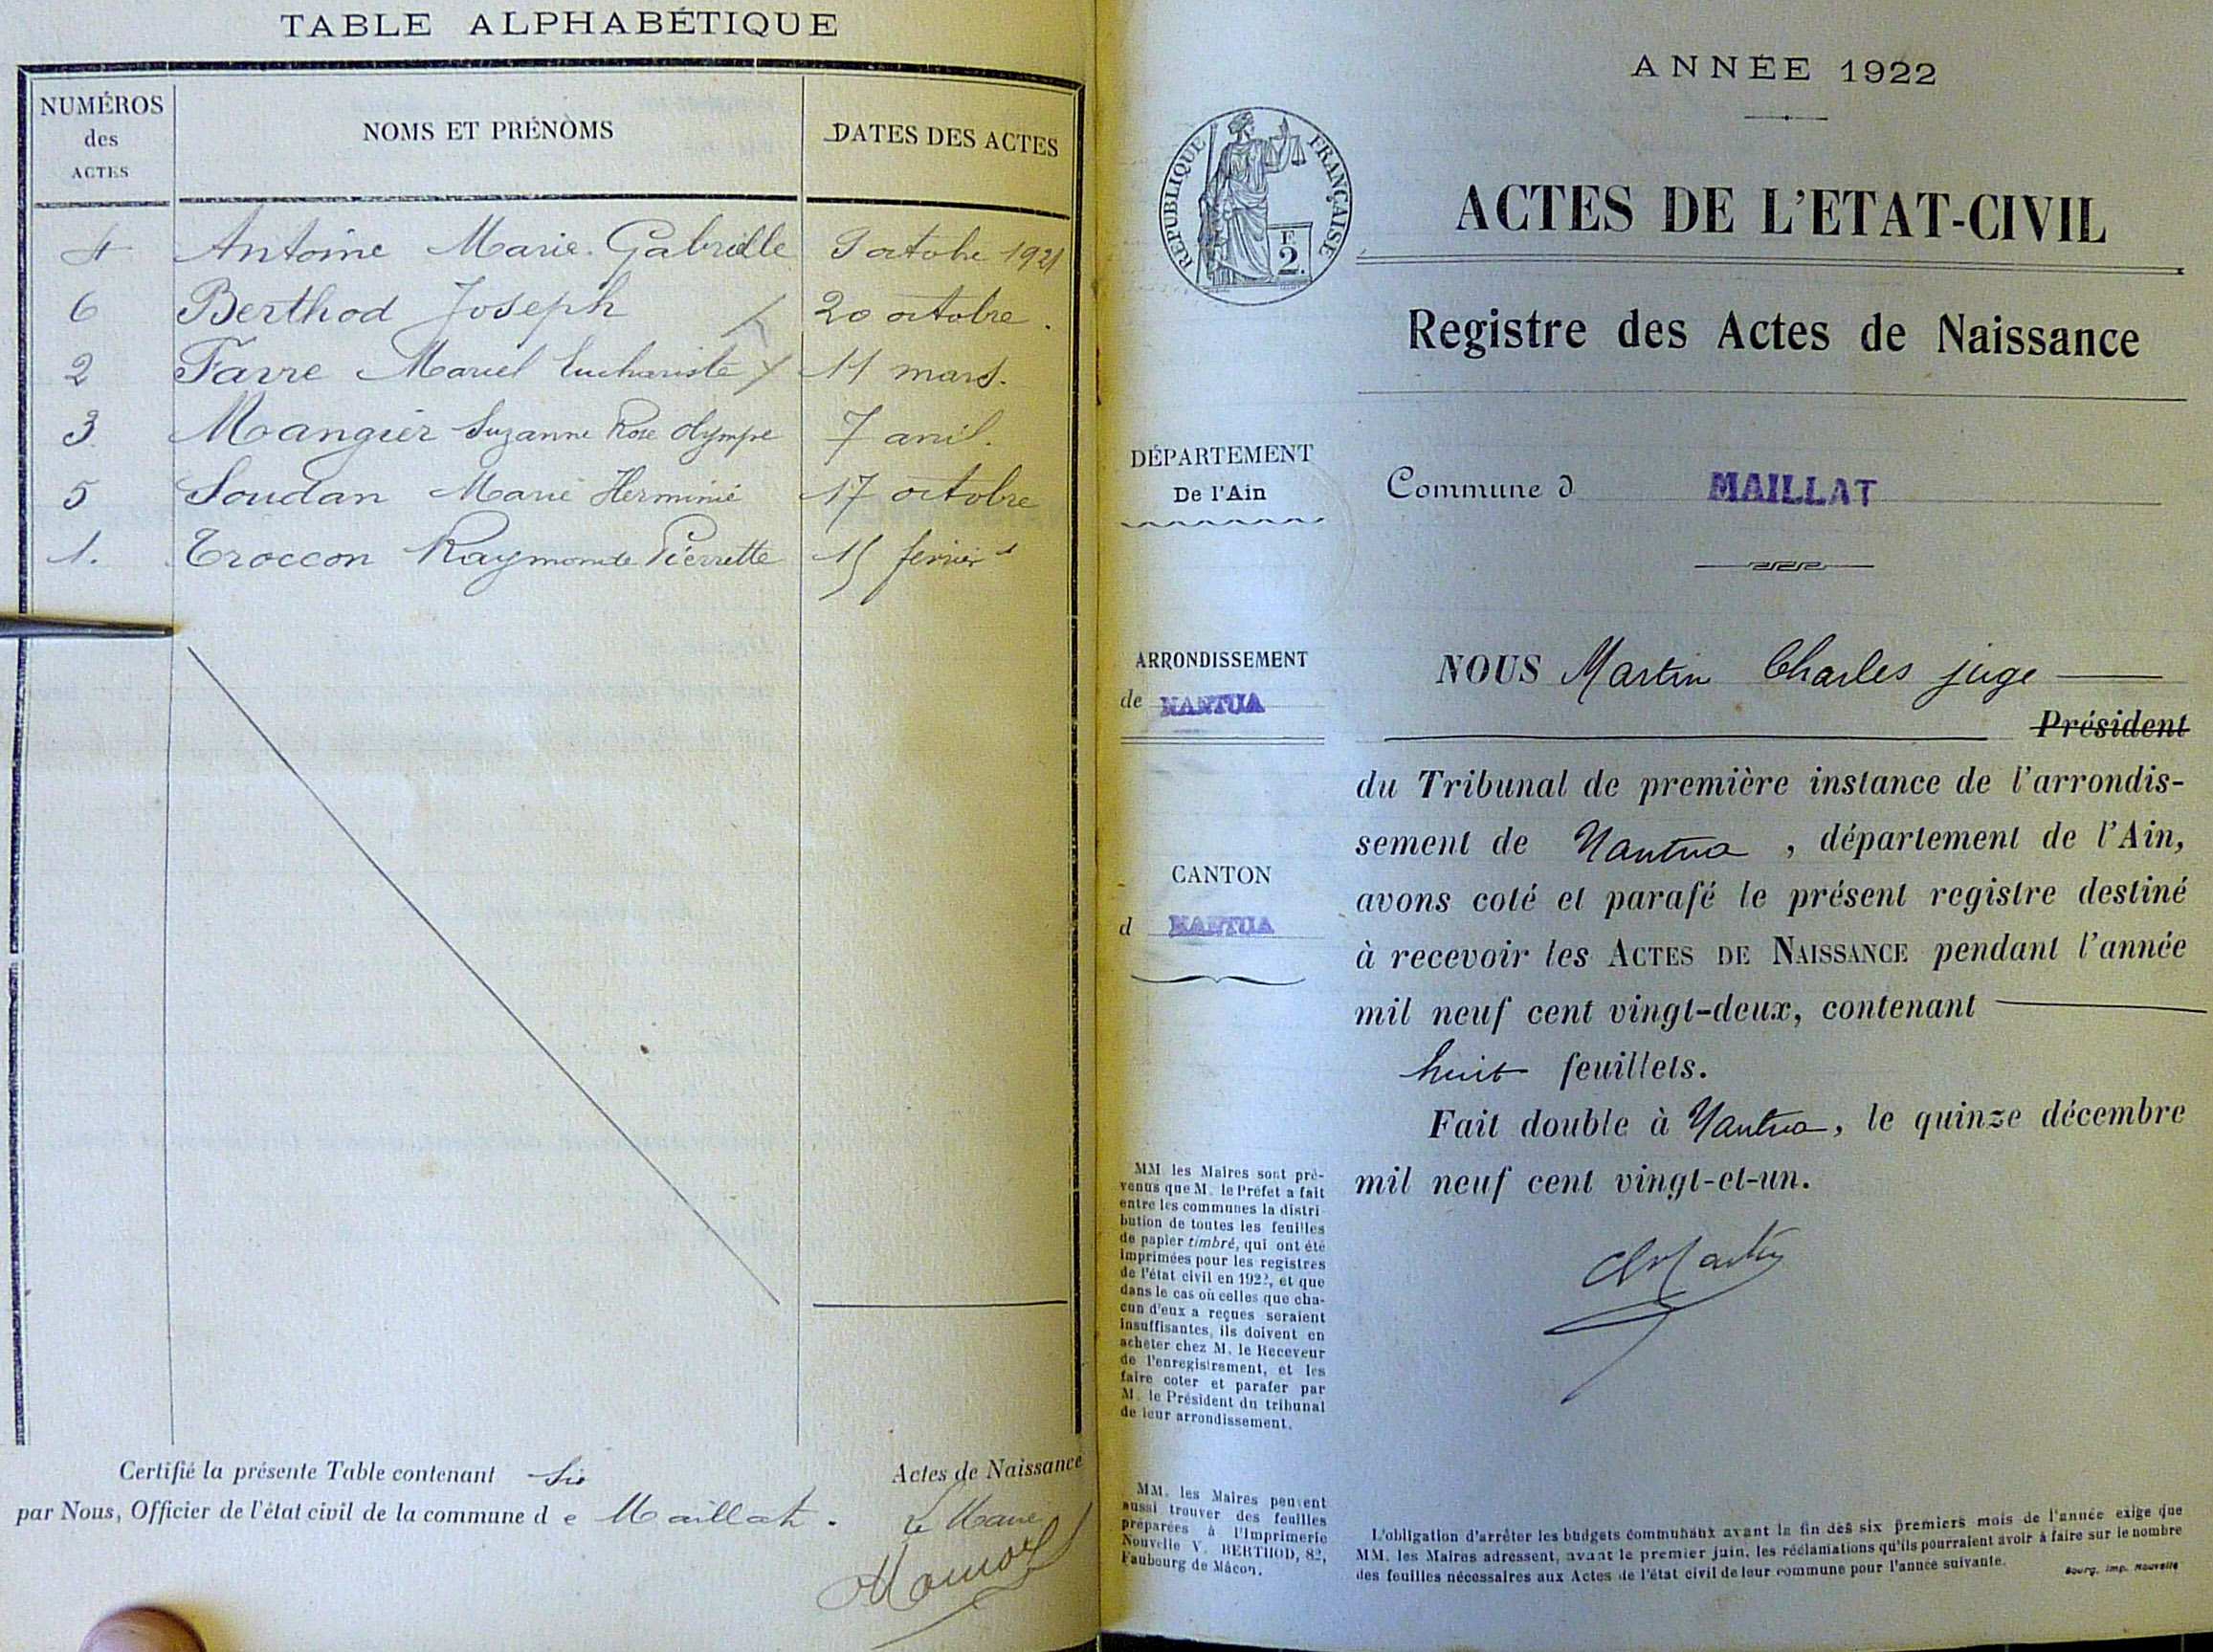 TABLE ALPHABÉTIQUE
NUMÉROS des ACTES
NOMS ET PRÉNOMS
DATES DES ACTES
4 Antoine Marie Gabrielle 9 octobre 1921
6 Berthod Joseph 20 octobre.
2 Favre Marcel Euchariste 11 mars.
3 Mangier Suzanne Rose Olympe 7 avril.
5 Soudan Marie Herminie 17 octobre
1. Troccon Raymonde Pierrette 15 fevrier
Certifié la présente Table contenant six Actes de Naissance
par Nous, Officier de l'état civil de la commune d e Maillat.
Le Maire
ANNÉE 1922
RÉPUBLIQUE FRANÇAISE
F
2.
ACTES DE L'ETAT-CIVIL
Registre des Actes de Naissance
DÉPARTEMENT
De l'Ain
Commune d MAILLAT
ARRONDISSEMENT
de NANTUA
CANTON
d NANTUA
NOUS Martin Charles juge
Président
du Tribunal de première instance de l'arrondis-
sement de Nantua, département de l'Ain,
avons coté et parafé le présent registre destiné
à recevoir les ACTES DE NAISSANCE pendant l'année
mil neuf cent vingt-deux, contenant
huit feuillets.
Fait double à Nantua, le quinze décembre
mil neuf cent vingt-et-un.
Ch Martin
MM les Maires sont pré-
venus que M. le Préfet a fait
entre les communes la distri-
bution de toutes les feuilles
de papier timbré, qui ont été
imprimées pour les registres
de l'état civil en 1922, et que
dans le cas où celles que cha-
cun d'eux a reçues seraient
insuffisantes, ils doivent en
acheter chez M. le Receveur
de l'enregistrement, et les
faire coter et parafer par
M. le Président du tribunal
de leur arrondissement.
MM. les Maires peuvent
aussi trouver des feuilles
préparées à l'Imprimerie
Nouvelle V. BERTHOD, 82,
Faubourg de Mâcon.
L'obligation d'arrêter les budgets communaux avant la fin des six premiers mois de l'année exige que
MM. les Maires adressent, avant le premier juin, les réclamations qu'ils pourraient avoir à faire sur le nombre
des feuilles nécessaires aux Actes de l'état civil de leur commune pour l'année suivante.
Bourg, Imp. Nouvelle